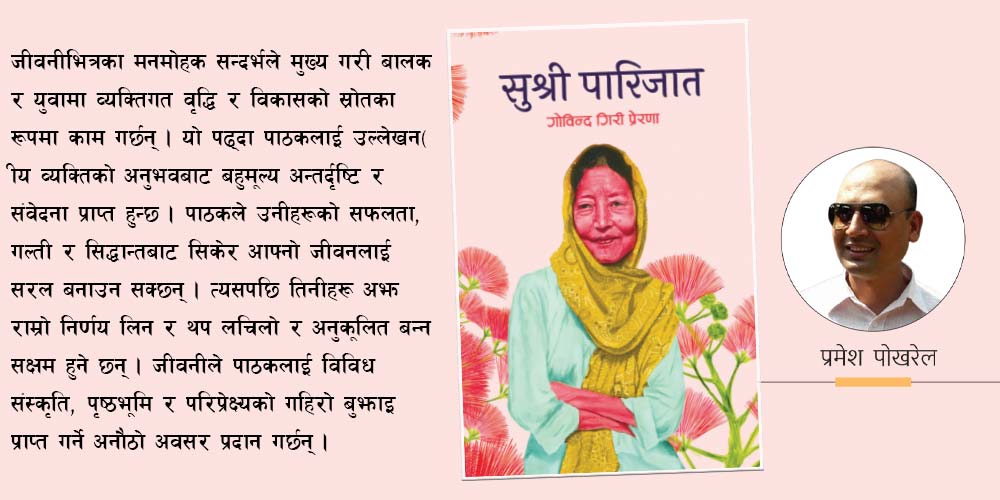 जीवनीभित्रका मनमोहक सन्दर्भले मुख्य गरी बालक
र युवामा व्यक्तिगत वृद्धि र विकासको स्रोतका
रूपमा काम गर्छन् । यो पढ्दा पाठकलाई उल्लेखन(
ीय व्यक्तिको अनुभवबाट बहुमूल्य अन्तर्दृष्टि र
संवेदना प्राप्त हुन्छ । पाठकले उनीहरूको सफलता,
गल्ती र सिद्धान्तबाट सिकेर आफ्नो जीवनलाई
सरल बनाउन सक्छन् । त्यसपछि तिनीहरू अझ
राम्रो निर्णय लिन र थप लचिलो र अनुकूलित बन्न
सक्षम हुने छन् । जीवनीले पाठकलाई विविध
संस्कृति, पृष्ठभूमि र परिप्रेक्ष्यको गहिरो बुझाइ
प्राप्त गर्ने अनौठो अवसर प्रदान गर्छन् ।
सुश्री पारिजात
गोविन्द गिरी प्रेरणा
प्रमेश पोखरेल